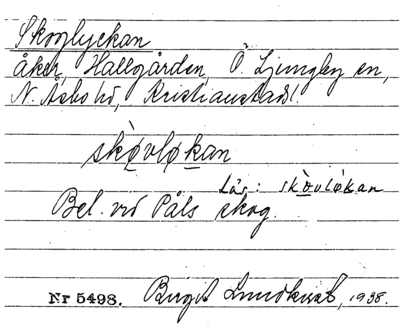 Skoglyckan
åker, Hallgården, Ö. Ljungby sn,
N. Åsbo hd, Kristianstad l.
skòvløkan
Läs: skòvløkan
Bel. vid Påls skog.
Nr 5498. Birgit Lundkvist, 1938.